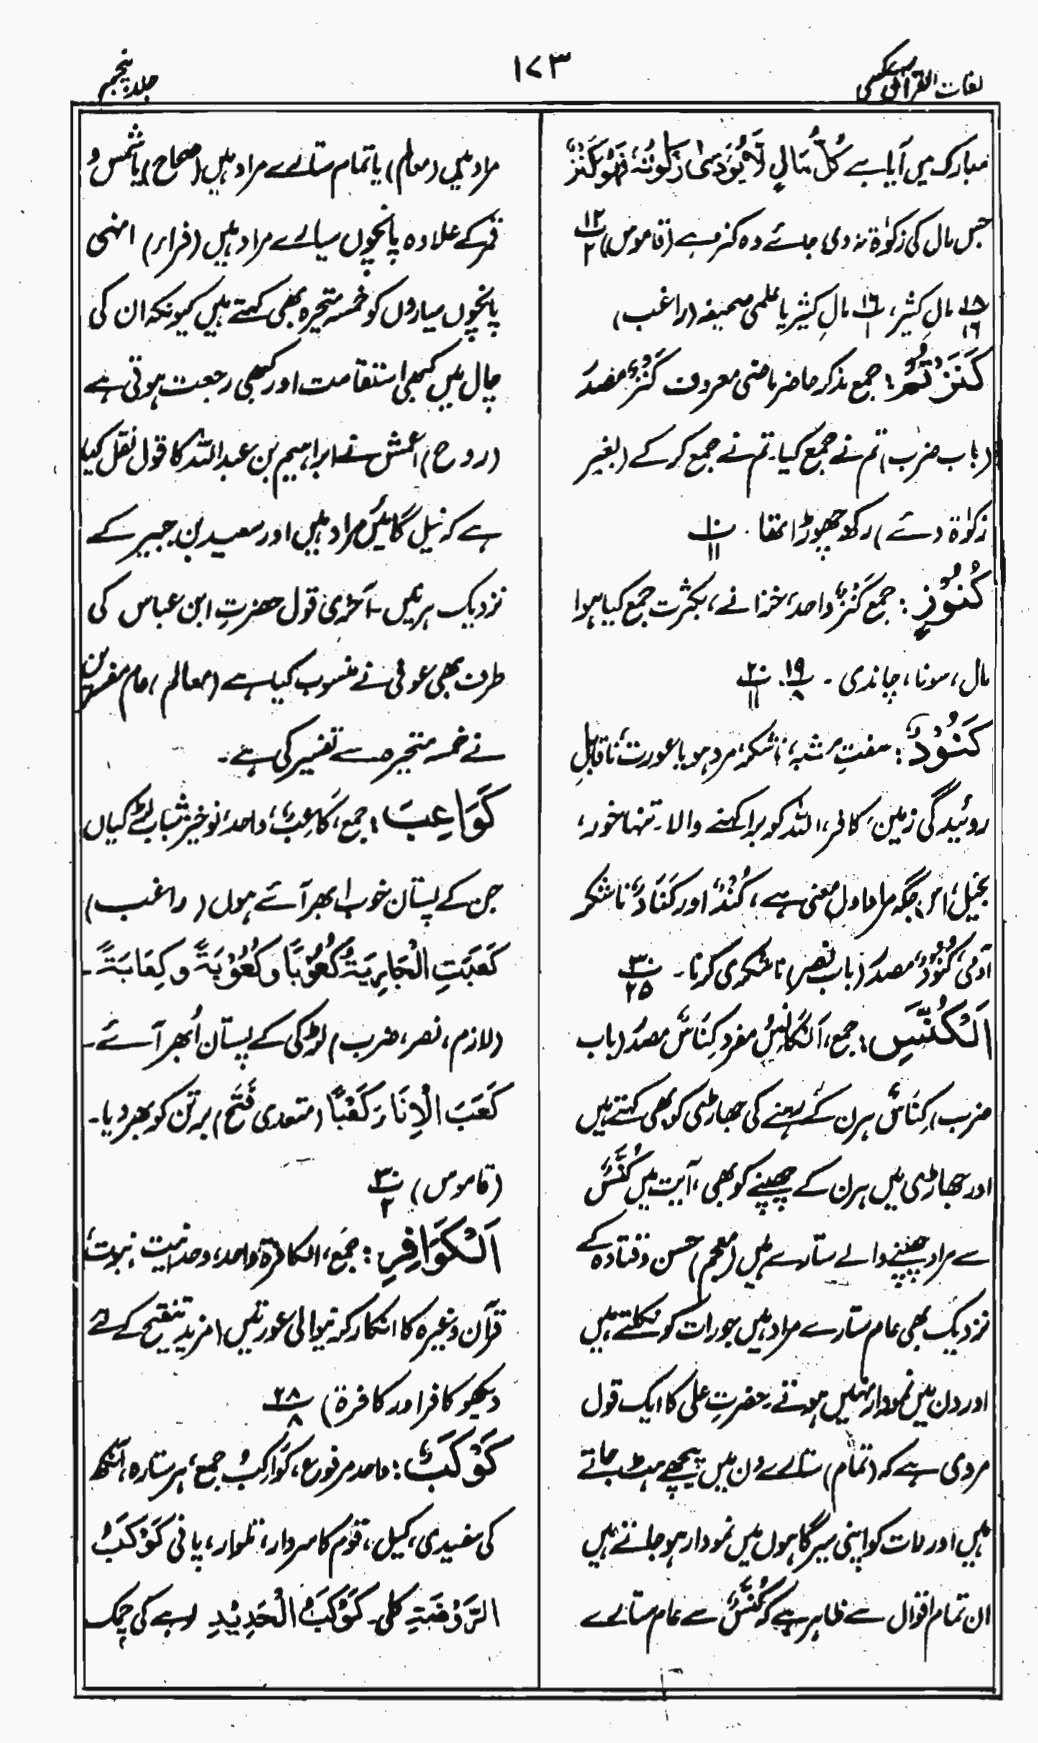 لغات القرآن عکسی
۱۷۳
جلد پنجم
مبارک میں آیا ہے کُلُّ مَالٍ لَا یُؤَدّٰی زَکٰوتُہٗ فَھُوَ کَنْزٌ
جس مال کی زکوٰۃ نہ دی جائے وہ کنز ہے (قاموس) ۱۲/۲
۱۵/۱۶ مالِ کثیر، ۱۶/۱ مالِ کثیر یا علمی صحیفہ (راغب)
کَنَزْتُمْ: جمع مذکر حاضر ماضی معروف کَنْزٌ مصدر
(باب ضرب) تم نے جمع کیا۔ تم نے جمع کر کے (بغیر
زکوٰۃ دئے) رکھ چھوڑا تھا۔ ۱۰/۱۱
کُنُوْزٍ: جمع کَنْزٌ واحد، خزانے، بکثرت جمع کیا ہوا
مال، سونا، چاندی۔ ۱۹/۸ ۲۰/۱۱
کَنُوْدٌ: صفتِ مشبہ، ناشکرا مرد ہو یا عورت، ناقابلِ
روئیدگی زمین، کافر، اللہ کو برا کہنے والا۔ تنہا خور،
بخیل، اس جگہ مراد اول معنی ہے، کُنُدٌ اور کَنَّادٌ ناشکر
آدمی، کُنُوْدٌ مصدر (باب نصر) ناشکری کرنا۔ ۳۰/۲۵
اَلْکُنَّسِ: جمع، اَلْکَانِسُ مفرد کِنَاسٌ مصدر (باب
ضرب) کِنَاسٌ ہرن کے رہنے کی جھاڑی کو بھی کہتے ہیں
اور جھاڑی میں ہرن کے چھپنے کو بھی، آیت میں کُنَّسٌ
سے مراد چھپنے والے ستارے ہیں (معجم) حسن و قتادہ کے
نزدیک بھی عام ستارے مراد ہیں جو رات کو نکلتے ہیں
اور دن میں نمودار نہیں ہوتے۔ حضرتِ علی کا ایک قول
مروی ہے کہ (تمام) ستارے دن میں پیچھے ہٹ جاتے
ہیں اور رات کو اپنی سیرگاہوں میں نمودار ہو جاتے ہیں
ان تمام اقوال سے ظاہر ہے کہ کُنَّسٌ سے عام ستارے
مراد ہیں (معالم) یا تمام ستارے مراد ہیں (صحاح) یا شمس و
قمر کے علاوہ پانچوں سیارے مراد ہیں (فرار) انہی
پانچوں سیاروں کو خمسہ متحیرہ بھی کہتے ہیں کیونکہ ان کی
چال میں کبھی استقامت اور کبھی رجعت ہوتی ہے
(روح) اعمش نے ابراہیم بن عبداللہ کا قول نقل کیا
ہے کہ نیل گائیں مراد ہیں اور سعید بن جبیر کے
نزدیک ہرنیں۔ آخری قول حضرتِ ابن عباس کی
طرف بھی عوفی نے منسوب کیا ہے (معالم) عام مفسرین
نے خمسہ متحیرہ سے تفسیر کی ہے۔
کَوَاعِبَ: جمع، کَاعِبٌ، واحد، نوخیز شباب لڑکیاں
جن کے پستان خوب ابھر آئے ہوں (راغب)
کَعَبَتِ الْجَارِیَۃُ کُعُوْبًا وَ کُعُوْبَۃً وَ کِعَابَۃً۔
(لازم، نصر، ضرب) لڑکی کے پستان اُبھر آئے۔
کَعَبَ الْاِنَاءَ کَعْبًا (متعدی فَتَحَ) برتن کو بھر دیا۔
(قاموس) ۳۰/۲
اَلْکَوَافِرِ: جمع، الکافرۃ واحد، وحدانیت، نبوت،
قرآن وغیرہ کا انکار کرنیوالی عورتیں (مزید تنقیح کے لئے
دیکھو کافر اور کافرۃ) ۲۸/۸
کَوْکَبٌ: واحد مرفوع، کَوَاکِبُ جمع، ہر ستارہ، آنکھ
کی سفیدی، کیل، قوم کا سردار، تلوار، پانی کَوْکَبُ
الرَّوْضَۃِ کلی۔ کَوْکَبُ الْحَدِیْدِ لوہے کی چمک